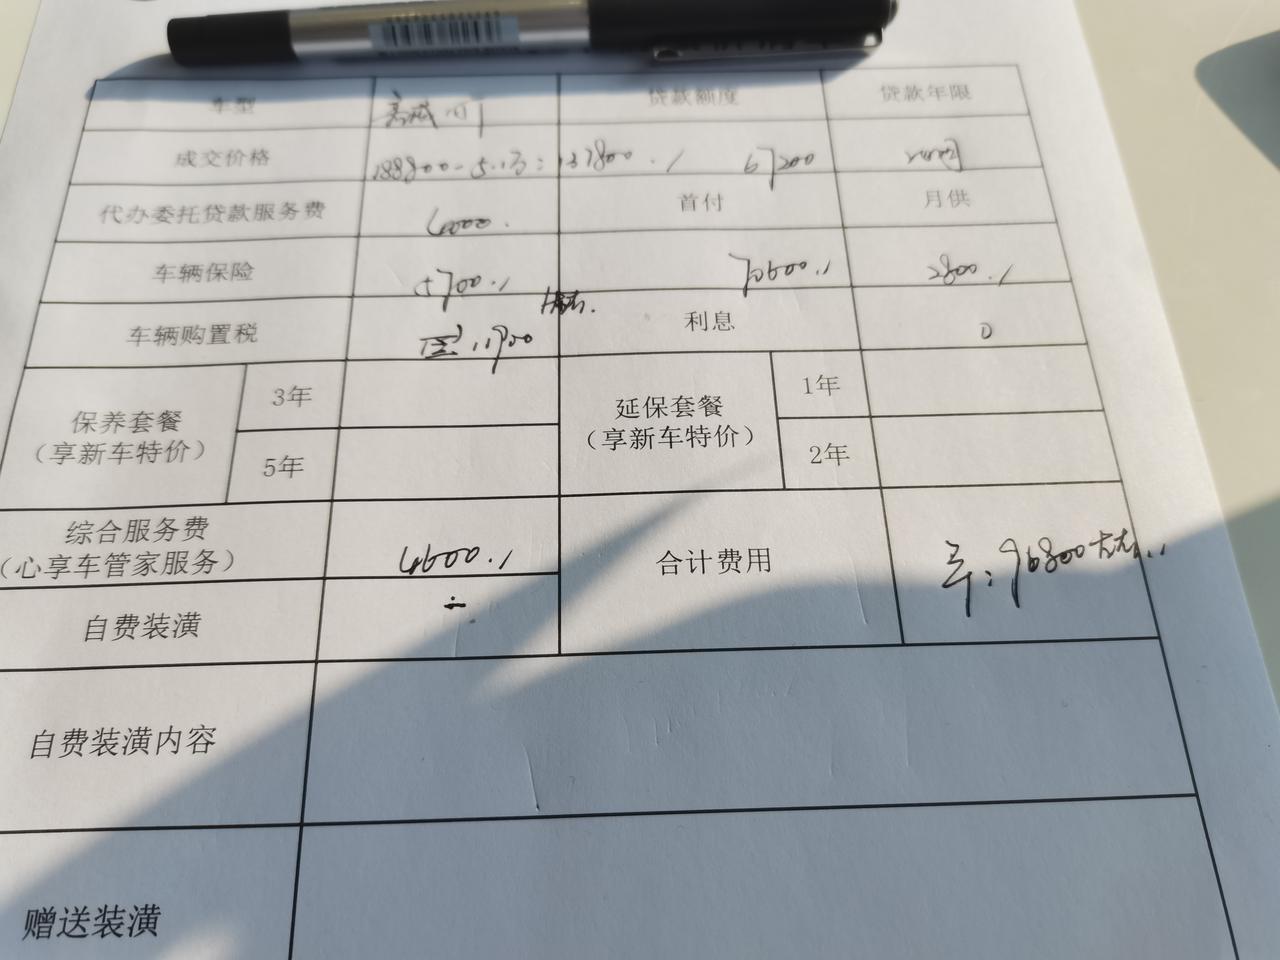 车型 贷款额度 贷款年限
成交价格 188800-5.1万=137800.1 67200
代办委托贷款服务费 4000. 首付 月供
车辆保险 5700.1 70600.1 2800.1
车辆购置税 11900 利息 0
保养套餐
(享新车特价)
3年
5年
延保套餐
(享新车特价)
1年
2年
综合服务费
(心享车管家服务)
4600.1
合计费用
96800
自费装潢
自费装潢内容
赠送装潢